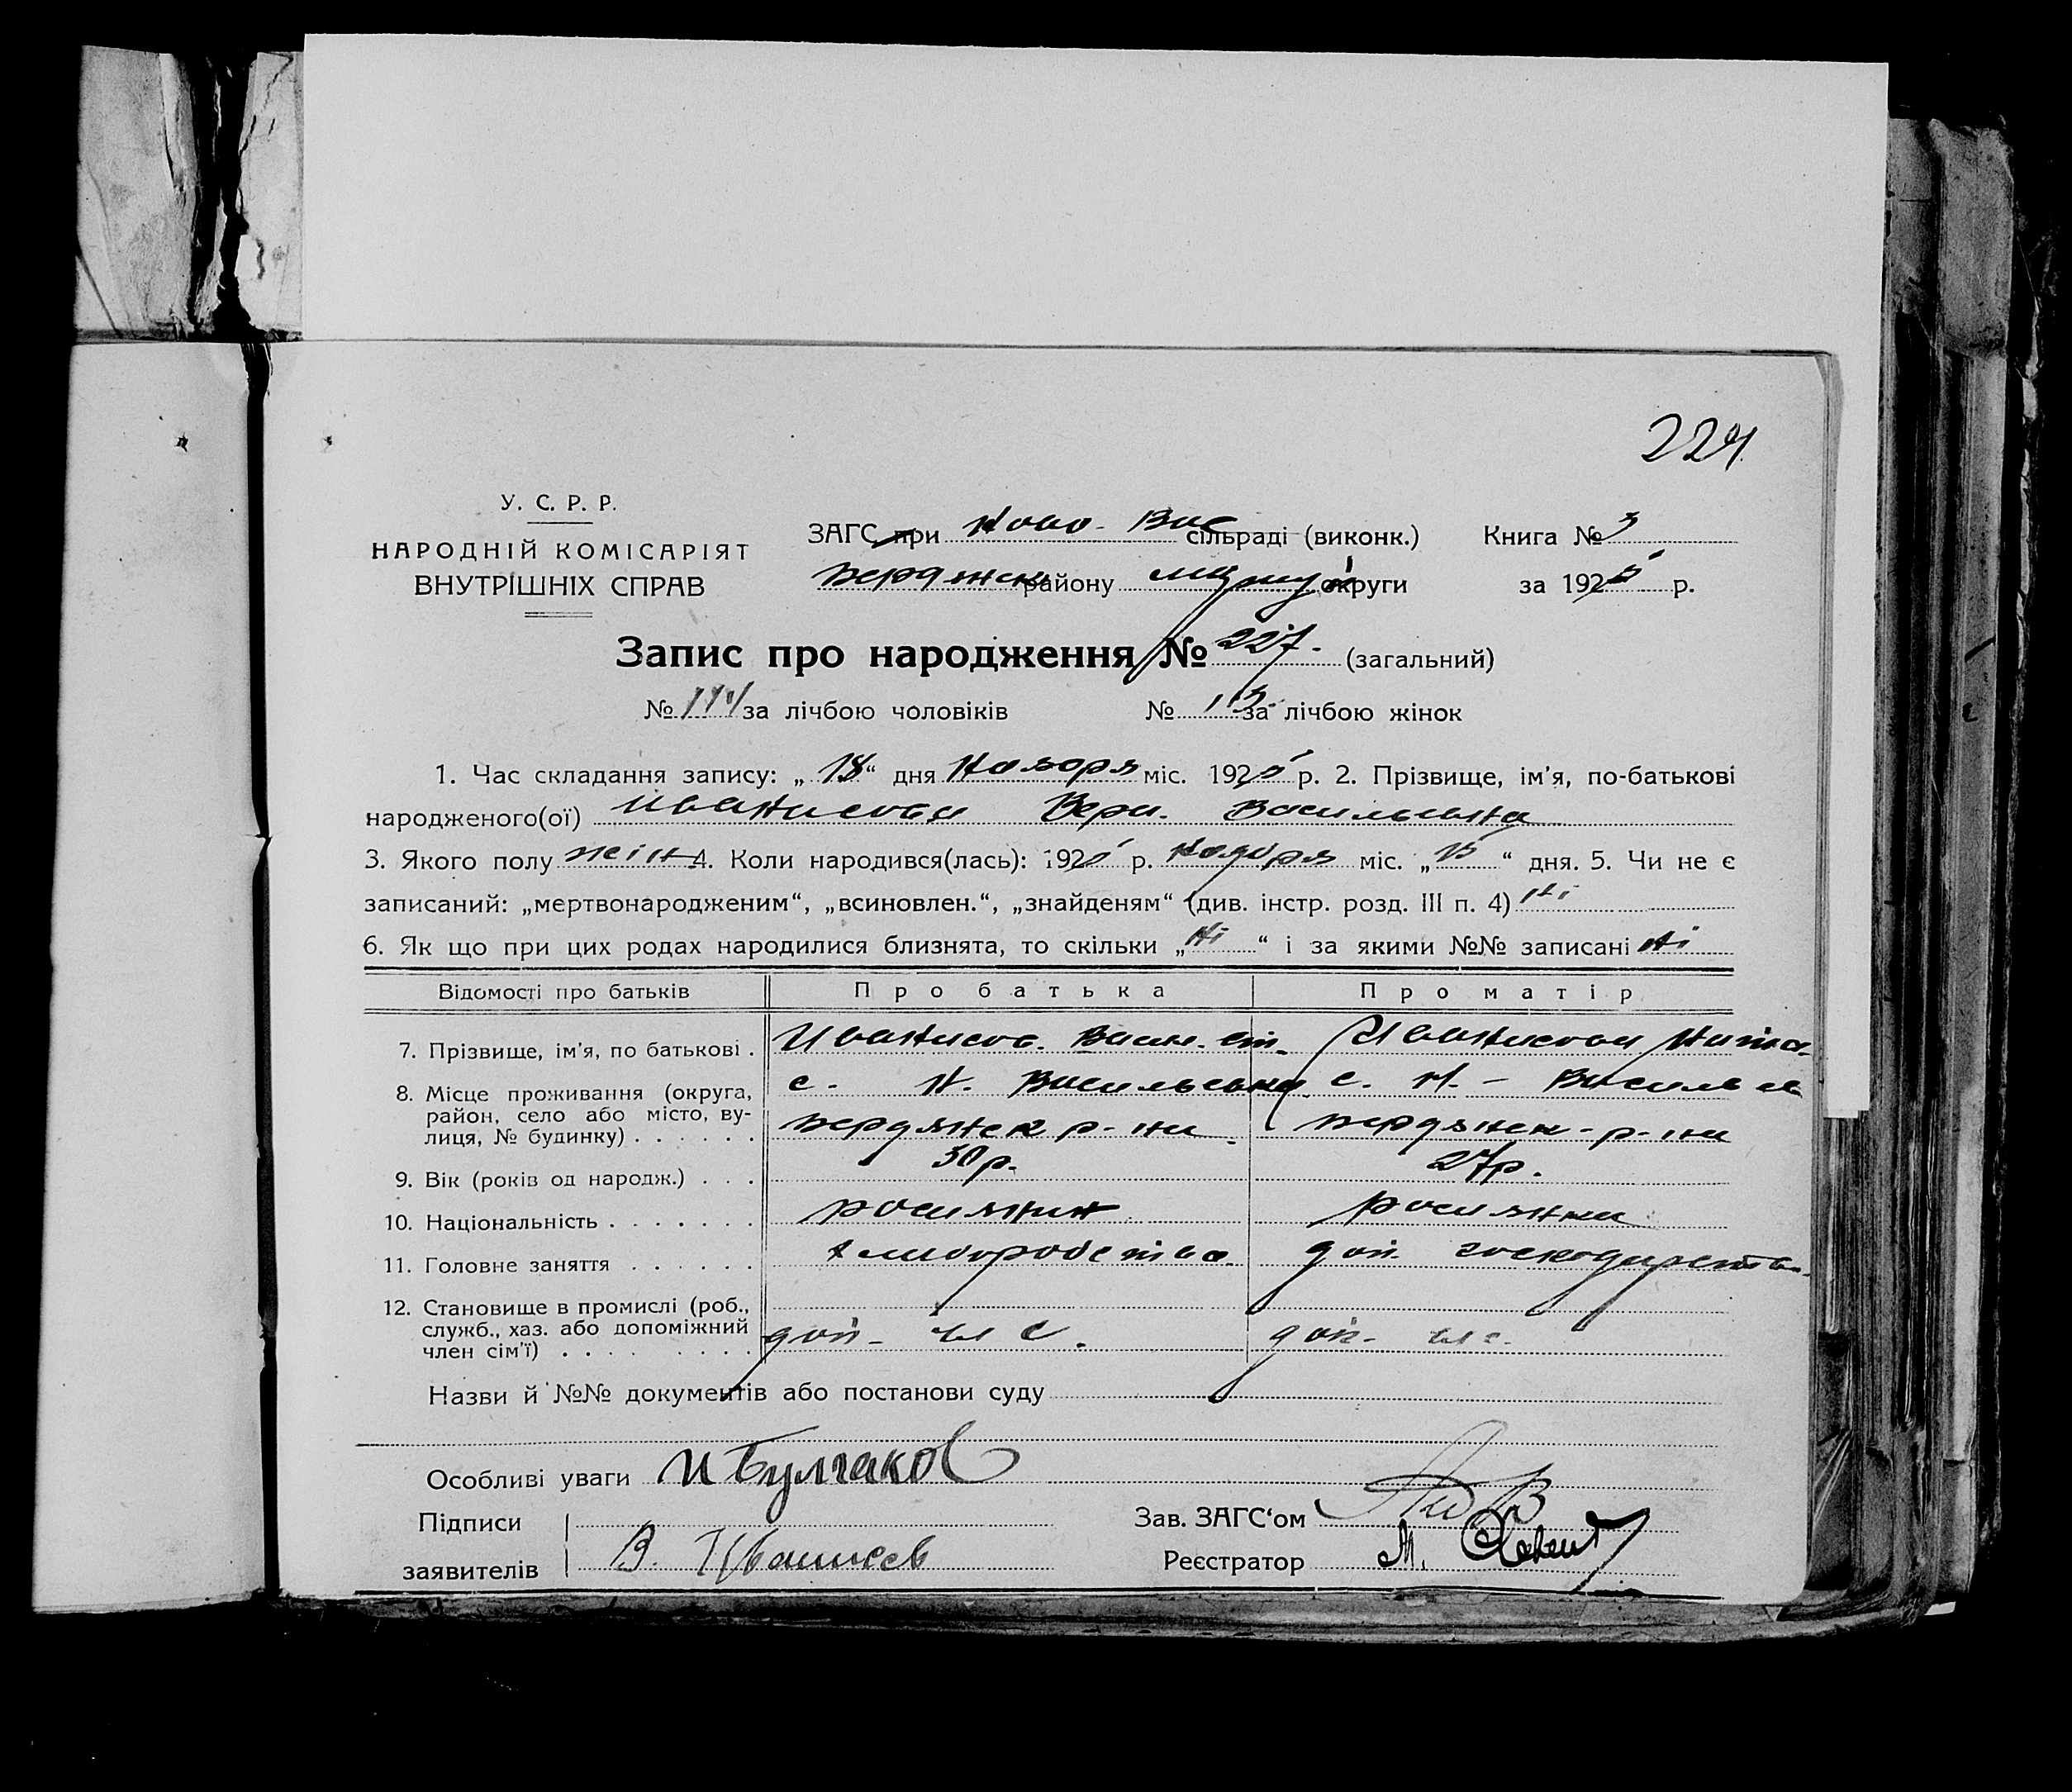 224
У. С. Р. Р.
НАРОДНІЙ КОМІСАРІЯТ
ВНУТРІШНІХ СПРАВ
ЗАГС при Ново-Вас сільраді (виконк.) Книга № 3
Бердянск району округи за 1925 р.
Запис про народження № 227. (загальний)
№ 114 за лічбою чоловіків № 113 за лічбою жінок
1. Час складання запису: „18“ дня Ноября міс. 1925 р. 2. Прізвище, ім'я, по-батькові
народженого(ої) Иванисова Вера Васильевна
3. Якого полу жін 4. Коли народився(лась): 1925 р. Ноября міс. „15“ дня. 5. Чи не є
записаний: „мертвонародженим“, „всиновлен.“, „знайденям“ (див. інстр. розд. III п. 4) Ні
6. Як що при цих родах народилися близнята, то скільки „Ні“ і за якими №№ записані Ні
Відомості про батьків Про батька Про матір
7. Прізвище, ім'я, по батькові . Иванисов. Васил. Иванисова
8. Місце проживання (округа, с. Н. Васильевка с. Н. - Васильев
район, село або місто, ву-
лиця, № будинку) . . . . . . Бердянск р-ни Бердянск-р-ни
9. Вік (років од народж.) . . . 30 р. 27 р.
10. Національність . . . . . . . росиянин росиянка
11. Головне заняття . . . . . . хлиборобство дом.
12. Становище в промислі (роб.,
служб., хаз. або допоміжний
член сім'ї) . . . . . . . . доп- чл с. доп- чл с.
Назви й №№ документів або постанови суду
Особливі уваги И Булгаков
Підписи Зав. ЗАГС‘ом
заявителів В. Иванисов Реєстратор М.